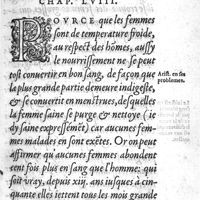 CHAP. LVIII.
POVRCE que les femmes
sont de temperature froide,
au respect des hômes, aussy
le nourrissement ne se peut
tost conuertir en bon sang, de façon que
la plus grande partie demeure indigeste,
& se conuertit en menstrues, de quelles
la femme saine se purge & nettoye (ie
dy saine expressément) car aucunes fem-
mes malades en sont exêtes. Or on peut
affirmer qu'aucunes femmes abondent
sent fois plus en sang que l'homme: qui
soit vray, depuis xiiij. ans iusques à cin-
quante elles iettent tous les mois grande
Arist. en ses
problemes.